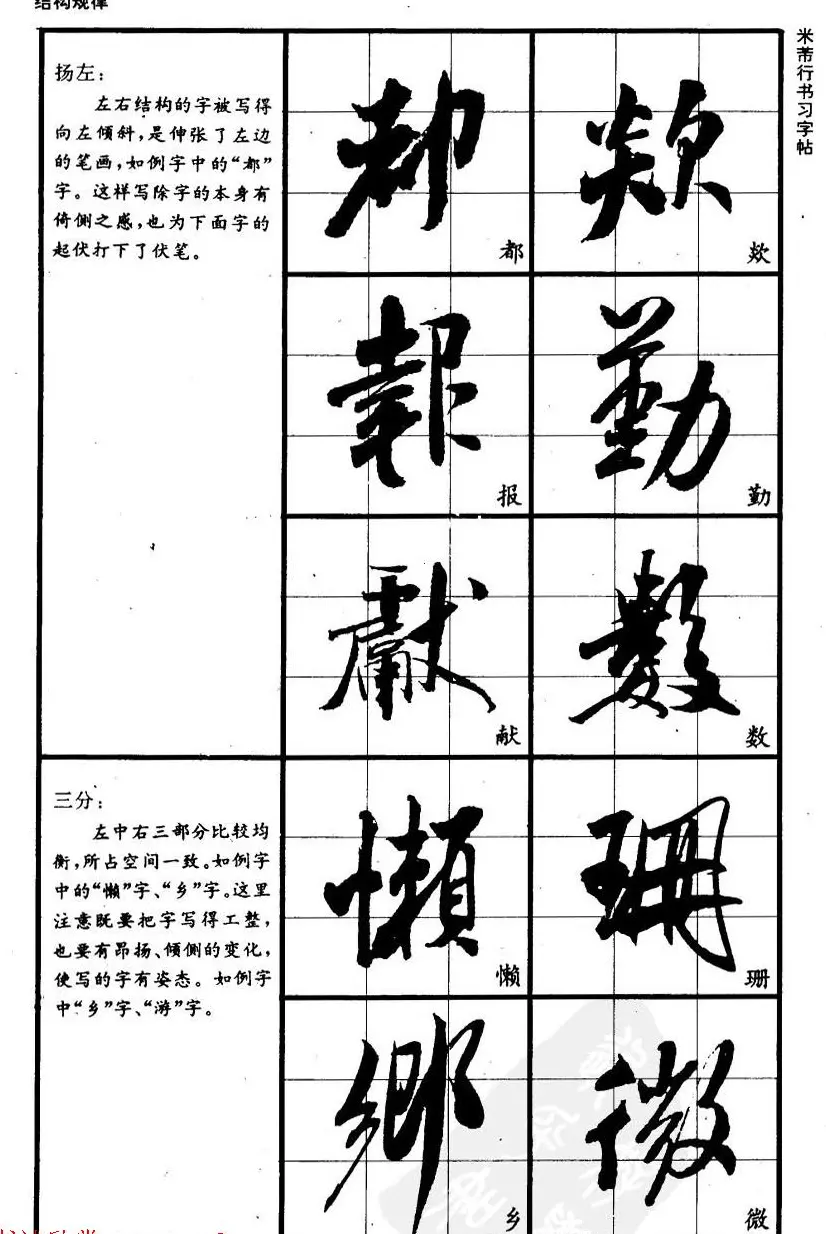 结构规律
米芾行书习字帖
扬左：
左右结构的字被写得
向左倾斜，是伸张了左边
的笔画，如例字中的“都”
字。这样写除字的本身有
倚侧之感，也为下面字的
起伏打下了伏笔。
都 欻
都 欻
報 勤
报 勤
獻 數
献 数
三分：
左中右三部分比较均
衡，所占空间一致。如例字
中的“懒”字、“乡”字。这里
注意既要把字写得工整，
也要有昂扬、倾侧的变化，
使写的字有姿态。如例字
中“乡”字、“游”字。
懶 珊
懒 珊
鄉 微
乡 微